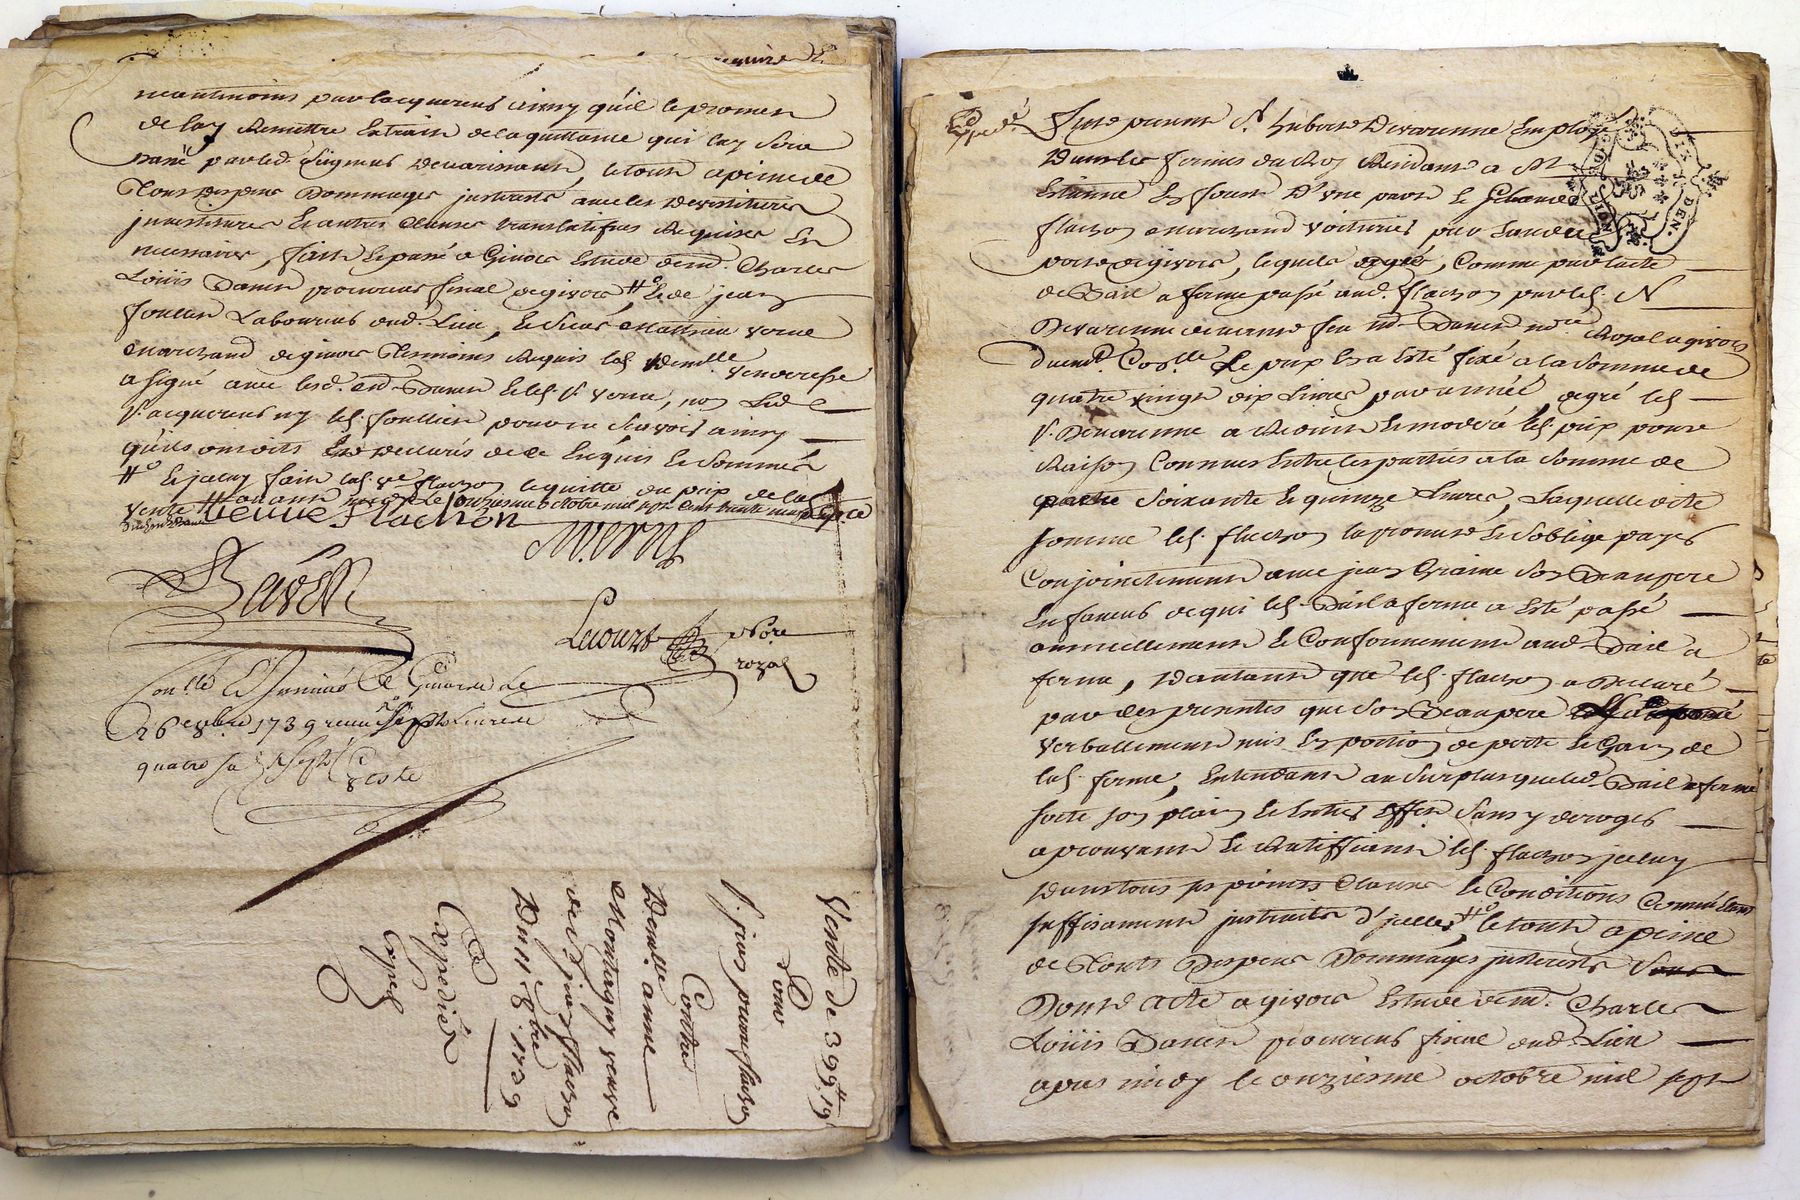 neantmoins par lacquereur ainsy qu'il le promet
de luy Remettre Extrait de la quittance qui luy sera
passé par led. Seigneur le tout a peine de
Tous depens Dommages jnterests avec les devestitures
jnvestitures Et autres Clauses translatifves Requises Et
necessaires, fait Et passé a Givors Estude de m.e Charles
Loüis Daven procureur fiscal de givors, Et de jean
foullier Laboureur aud. Lieu, Et Sieur Mathieu verne
marchand de givors Tesmoins Requis lad. dem.lle venderesse
a signé avec led. m.e Daven Et led. S.r verne, non Led.
S.r acquereur ny led. foullier pour ne scavoir ainsy
qu'ils ont dits Et declarés de ce Enquis Et Sommés
Et jceluy fait lad. ve flachon le quitte du prix de la
vente
onzieme octobre mil sept cent trente neuf
veuve flachon
M. verne
Daven
Lecourt nore
royal
Con.llé Et Jnsinué a Givors le
26 8bre 1739 receu Sept Livres
quatre s.
Coste
Vente de 399 lt 19
Pour
S. jean flachon
Contre
Demelle anne
Montagny veuve
de S. jean flachon
Du 11 8bre 1739
Expediée
Expedié
Fust present S.r hubert Devarenne Employé
Dans les fermes du Roy Residant a St
Estienne En foretz D'une part Et Claude
flachon marchand voiturier par Eau du
port de givors, lequels de gré, Comme par lacte
de Bail a ferme passé aud. flachon par led. S.r
Devarenne devant feu m.e Daven no.re Royal a givors
duemt. Con.llé Le prix En a Esté fixé a la Somme de
quatre vingt dix Livres par année, de gré led.
S.r Devarenne a Reduit Et moderé led. prix pour
Raisons Connues Entre les parties a la Somme de
Soixante Et quinze Livres, Laquelle dite
somme led. flachon la promis Et S'oblige payer
Conjoinctement avec jean Son Beaupere
En faveur de qui led. Bail a ferme a Esté passé
annuellement Et Conformement aud. Bail a
ferme, D'autant que led. flachon a Declaré
par ces presentes que Son Beaupere
verballement mis En portion de perte Et Gain de
lad. ferme, Entendant au Surplus que led. Bail a ferme
sorte son plain Et Entier Effet Sans y deroger
aprouvant Et Ratiffiant led. flachon jceluy
Dans tous ses points Clauses Et Conditions Comme Etant
suffisament jnstruits d'jcelles, le tout a peine
de Touts Depens Dommages jnterests
Dont Acte a givors Estude de m.e Charles
Loüis Daven procureur fiscal aud. Lieu
apres midy le onziesme octobre mil sept
DEN.